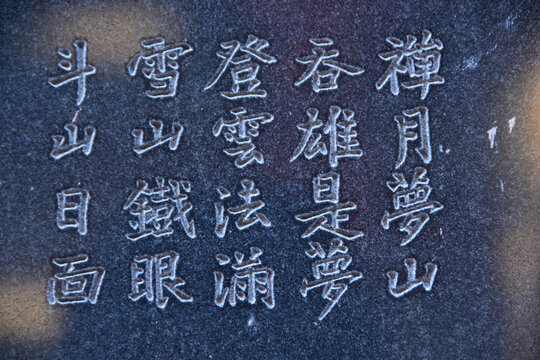 禪月夢山
吞雄是夢
登雲法滿
雪山鐵眼
斗山日面